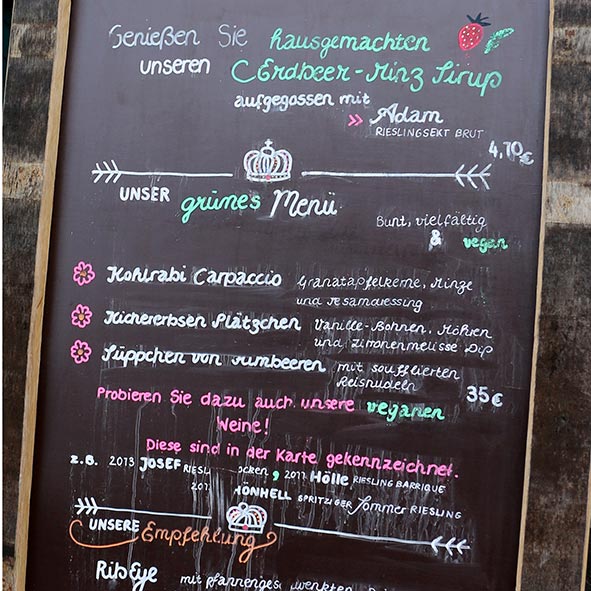 Genießen Sie hausgemachten
unseren Erdbeer-Minz Sirup
aufgegossen mit
» Adam
RIESLINGSEKT BRUT
4,70€
UNSER grünes Menü
Bunt, vielfältig
& vegan
Kohlrabi Carpaccio Granatapfelkerne, Minze
und Sesamdressing
Kichererbsen Plätzchen Vanille-Bohnen, Möhren
und Zitronenmelisse Dip
Süppchen von Himbeeren mit soufflierten
Reisnudeln 35€
Probieren Sie dazu auch unsere veganen
Weine!
Diese sind in der Karte gekennzeichnet.
z.B. 2013 JOSEF RIESL ocken, 2011 Hölle RIESLING BARRIQUE
201 HÖNHELL SPRITZIGER Sommer RIESLING
UNSERE Empfehlung
RibEye mit